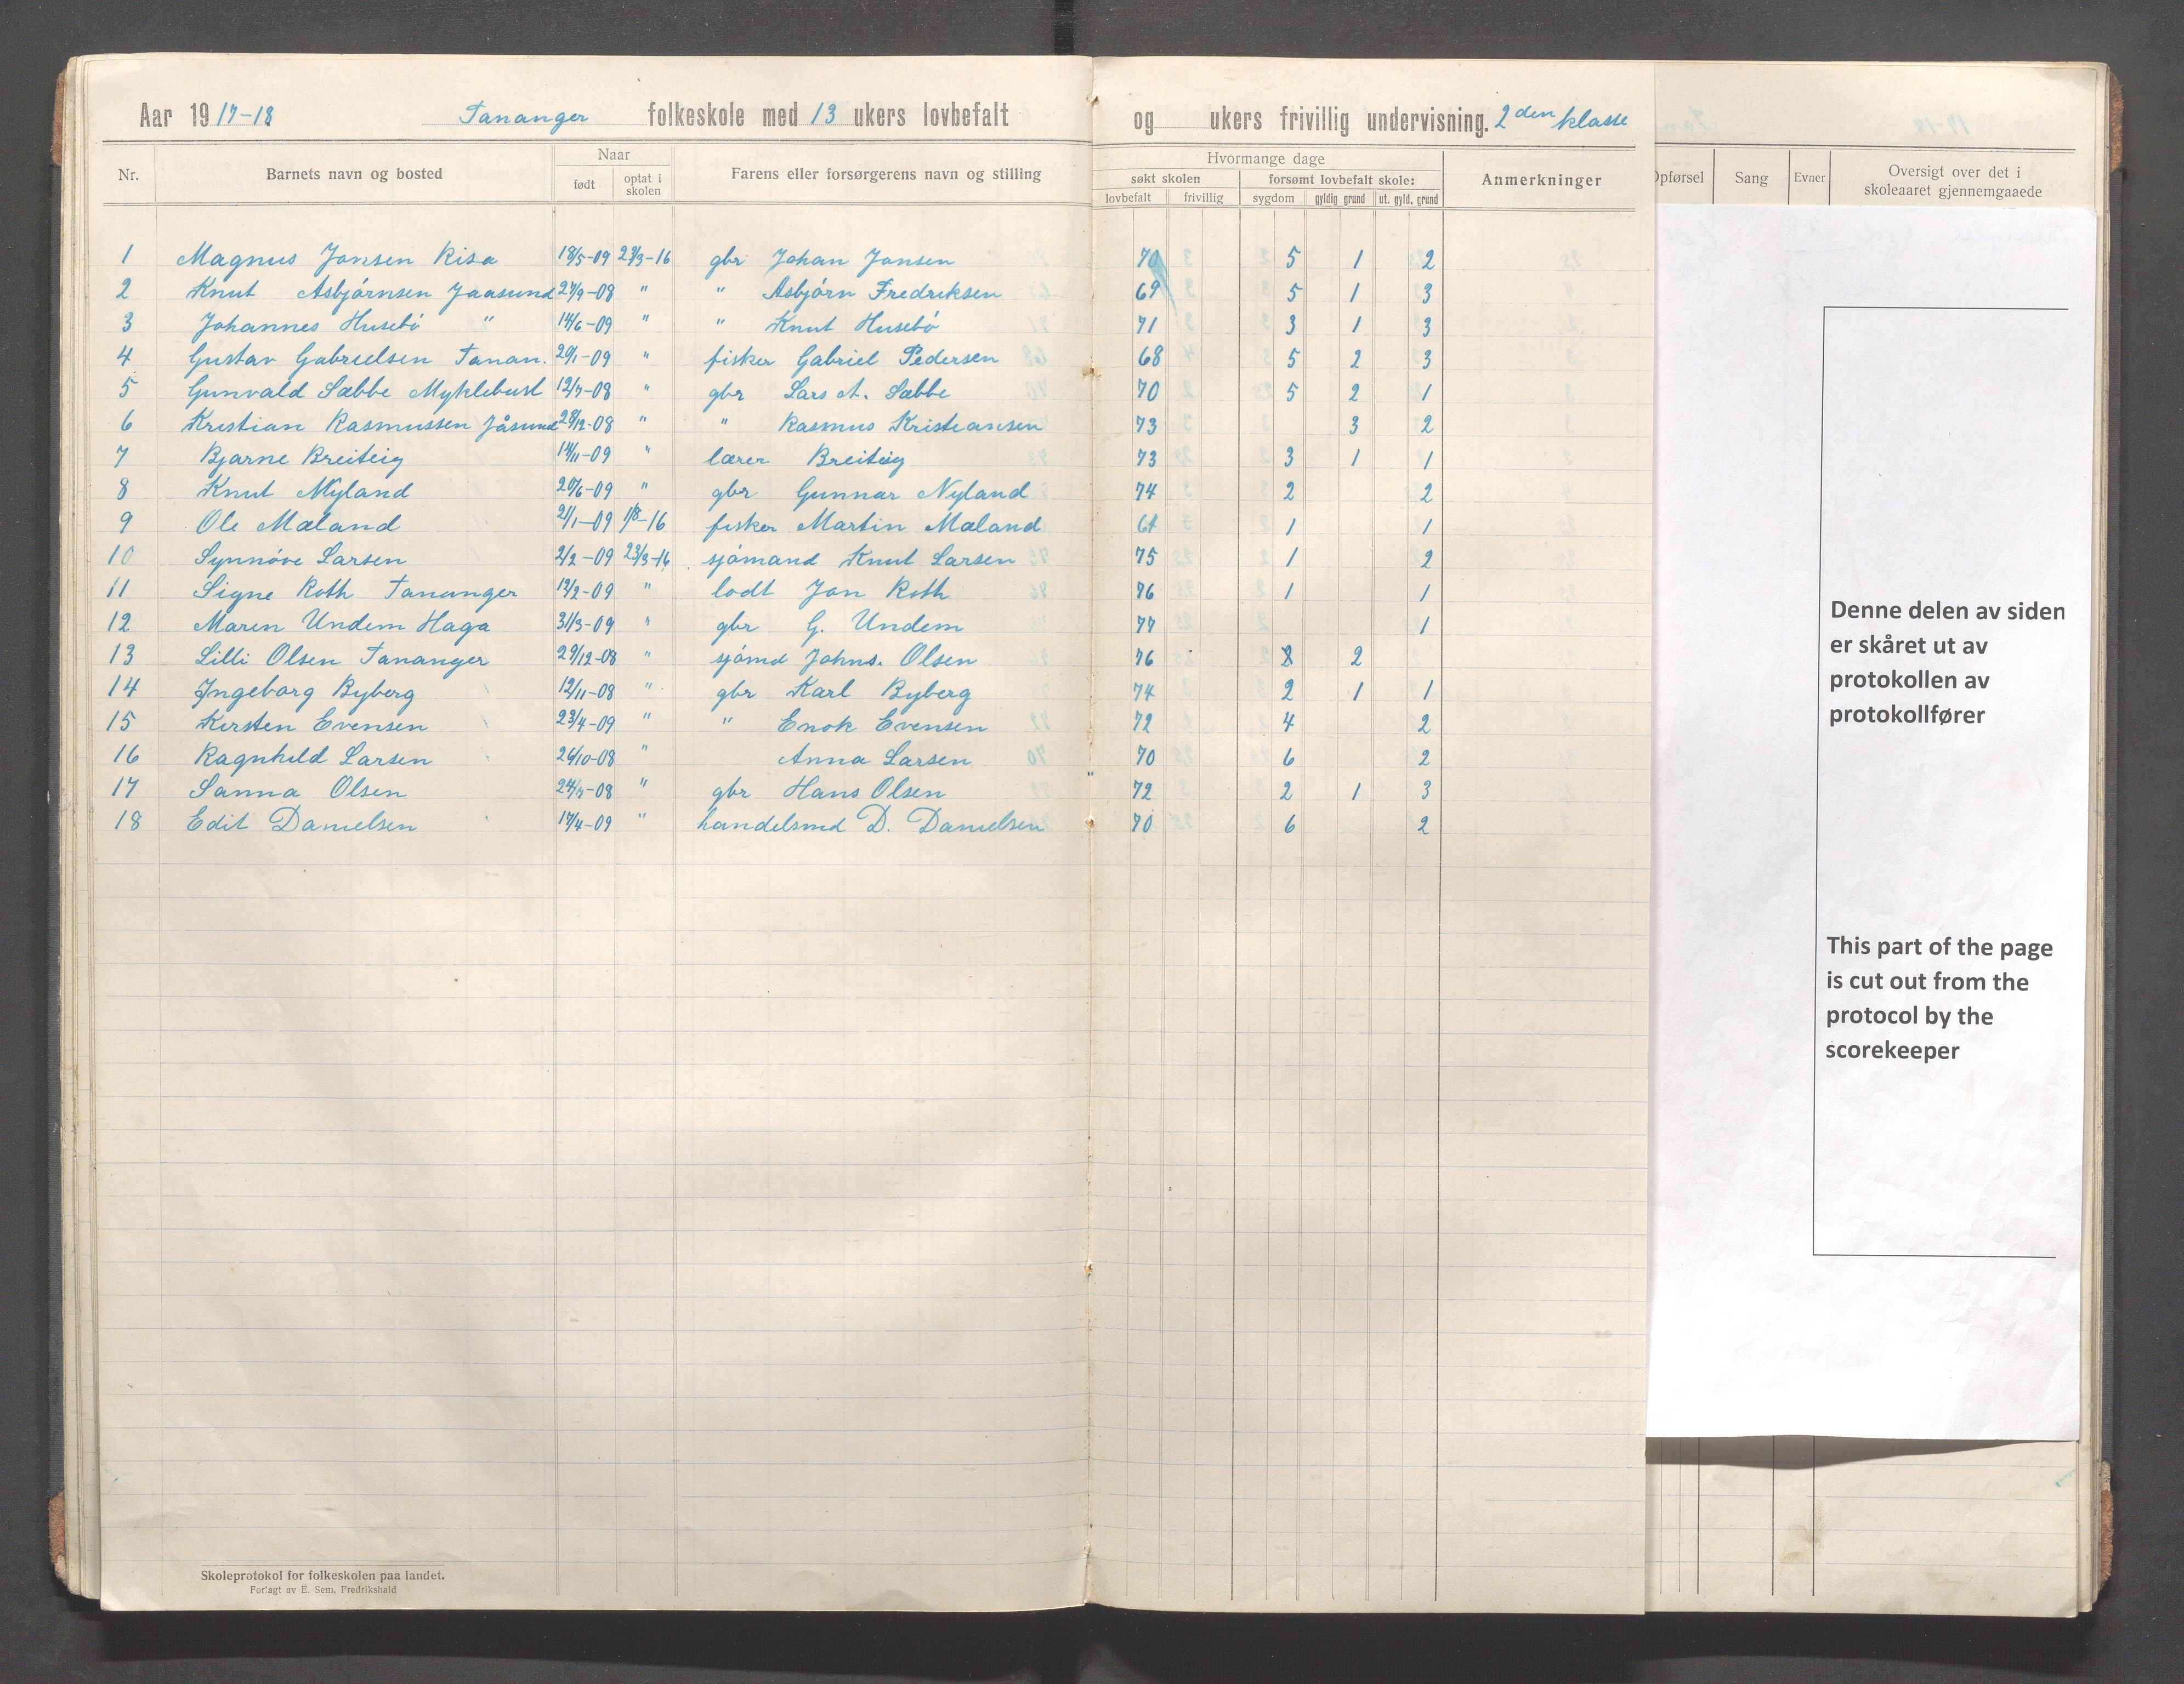 Aar 1917-18 Tananger folkeskole med 13 ukers lovbefalt og ukers frivillig undervisning. 2den klasse
Nr. Barnets navn og bosted Naar født optat i skolen Farens eller forsørgerens navn og stilling Hvormange dage søkt skolen lovbefalt frivillig forsømt lovbefalt skole: sygdom gyldig grund ut. gyld. grund Anmerkninger Opførsel Sang Evner Oversigt over det i skoleaaret gjennemgaaede
1 Magnus Jonsen Risa 18/5-09 23/3-16 gbr Johan Jonsen 70 5 1 2
2 Knut Asbjørnsen Jaasund 27/9-08 " " Asbjørn Fredriksen 69 5 1 3
3 Johannes Husebø " 14/6-09 " " Knut Husebø 71 3 1 3
4 Gustav Gabrielsen Tanan. 20/1-09 " fisker Gabriel Pedersen 68 5 2 3
5 Gunvald Sæbbe Myklebust 12/7-08 " gbr Lars A. Sæbbe 70 5 2 1
6 Kristian Rasmussen Jåsund 28/12-08 " " Rasmus Kristiansen 73 3 2
7 Bjarne Breiteig 14/11-09 " lærer Breiteig 73 3 1 1
8 Knut Nyland 20/6-09 " gbr Gunnar Nyland 74 2 2
9 Ole Mæland 21/1-09 1/8-16 fisker Martin Mæland 64 1 1
10 Synnøve Larsen 2/2-09 23/3-16 sjømand Knut Larsen 75 1 2
11 Signe Roth Tananger 12/2-09 " lodt Jon Roth 76 1 1
12 Maren Undem Haga 31/3-09 " gbr G. Undem 77 1
13 Lilli Olsen Tananger 29/12-08 " sjømd Johns. Olsen 76 2
14 Ingeborg Byberg 12/11-08 " gbr Karl Byberg 74 2 1 1
15 Kirsten Evensen 23/4-09 " " Enok Evensen 72 4 2
16 Ragnhild Larsen 26/10-08 " Anna Larsen 70 6 2
17 Sanna Olsen 24/7-08 " gbr Hans Olsen 72 2 1 3
18 Edit Danielsen 17/4-09 " handelsmd D. Danielsen 70 6 2
Denne delen av siden
er skåret ut av
protokollen av
protokollfører
This part of the page
is cut out from the
protocol by the
scorekeeper
Skoleprotokol for folkeskolen paa landet.
Forlagt av E. Sem, Fredrikshald